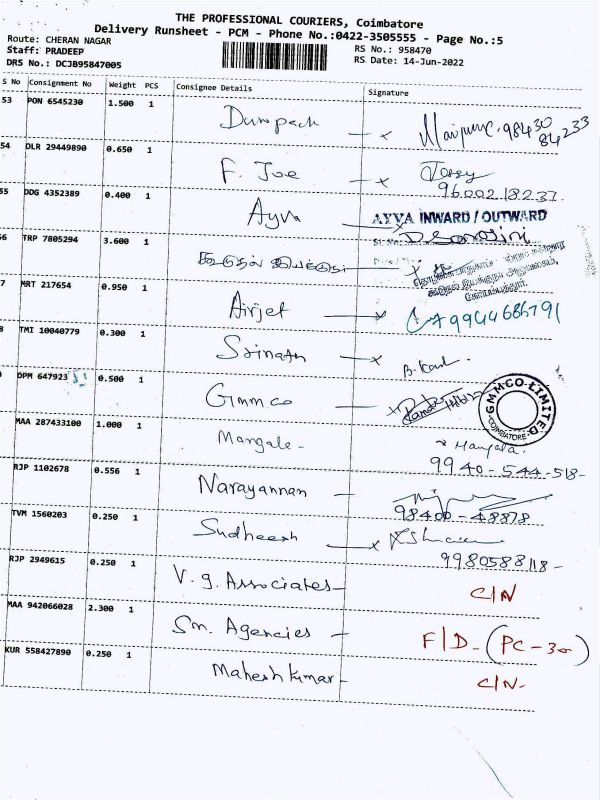 THE PROFESSIONAL COURIERS, Coimbatore
Delivery Runsheet - PCM - Phone No.:0422-3505555 - Page No.:5
Route: CHERAN NAGAR
Staff: PRADEEP
DRS No.: DCJB95847005
RS No.: 958470
RS Date: 14-Jun-2022
S No Consignment No Weight PCS Consignee Details Signature
53 PON 6545230 1.500 1 Dunpach x 98430 84233
54 DLR 29449890 0.650 1 F. Joe x 9600218237
55 DDG 4352389 0.400 1 Ayva AYVA INWARD / OUTWARD
56 TRP 7805294 3.600 1 x
7 MRT 217654 0.950 1 Airjet x 79944686791
8 TMI 10040779 0.300 1 Srinath x
DPM 647923 0.500 1 Gmmco x GMMCO LIMITED COIMBATORE
MAA 287433100 1.000 1 Mangale Mangala
9940-544-518-
RJP 1102678 0.556 1 Narayannan 98400-48878
TVM 1560203 0.250 1 Sudheesh x 9980588118-
RJP 2949615 0.250 1 V.g. Associates- C/N
MAA 942066028 2.300 1 Sm. Agencies - F/D-(PC-30)
KUR 558427890 0.250 1 Maheshkumar- C/N-